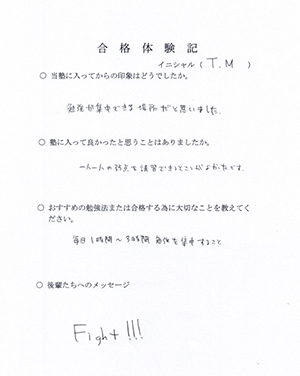 合格体験記
イニシャル ( T.M )
○ 当塾に入ってからの印象はどうでしたか。
勉強が集中できる場所だと思いました。
○ 塾に入って良かったと思うことはありましたか。
一人一人の弱点を講習できるところがよかったです。
○ おすすめの勉強法または合格する為に大切なことを教えてく
ださい。
毎日1時間～3時間 勉強を集中すること
○ 後輩たちへのメッセージ
Fight!!!